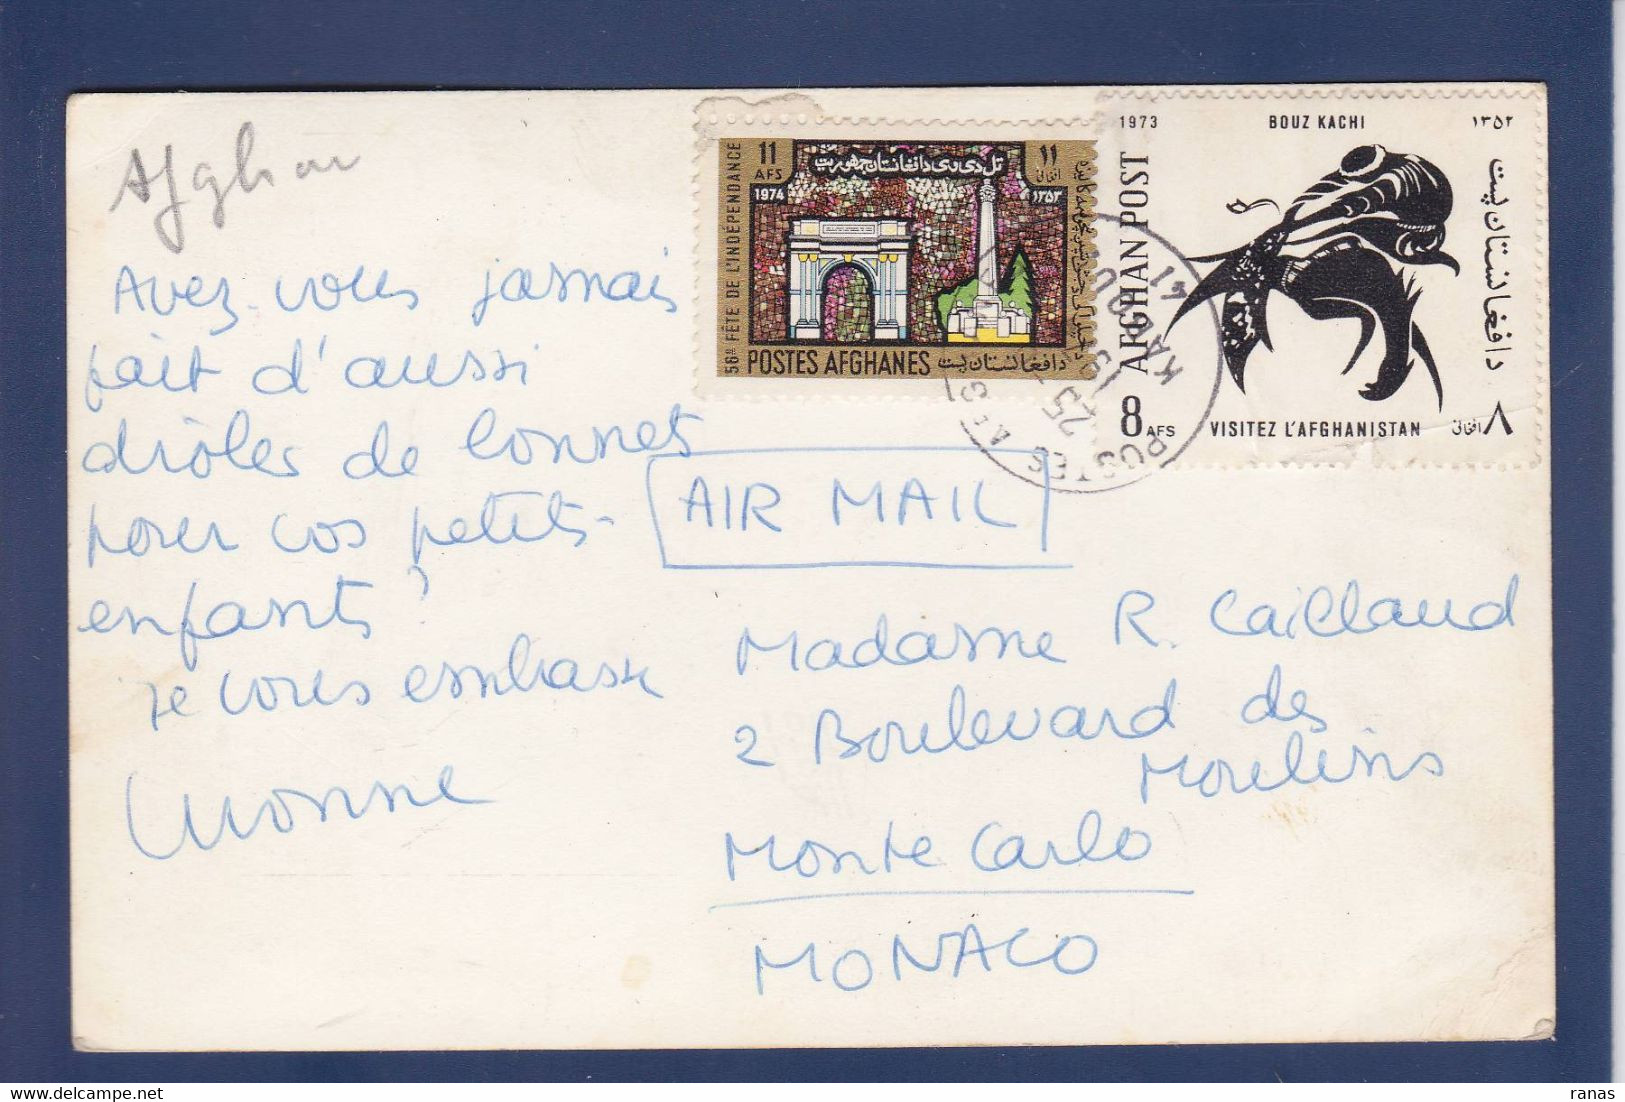 Afghan
Avez-vous jamais
fait d'aussi
drôles de bonnets
pour vos petits-
enfants ?
Je vous embrasse
Yvonne
AIR MAIL
Madame R. Caillaud
2 Boulevard des
Moulins
Monte Carlo
MONACO
11
AFS
1974
١١
افغانۍ
١٣٥٣
56e FÊTE DE L'INDÉPENDANCE
POSTES AFGHANES
د افغانستان پست
1973
BOUZ KACHI
١٣٥٢
AFGHAN POST
د افغانستان پست
8 AFS
VISITEZ L'AFGHANISTAN
٨ افغانۍ
POSTES AFG
KABOUL
25
ranas